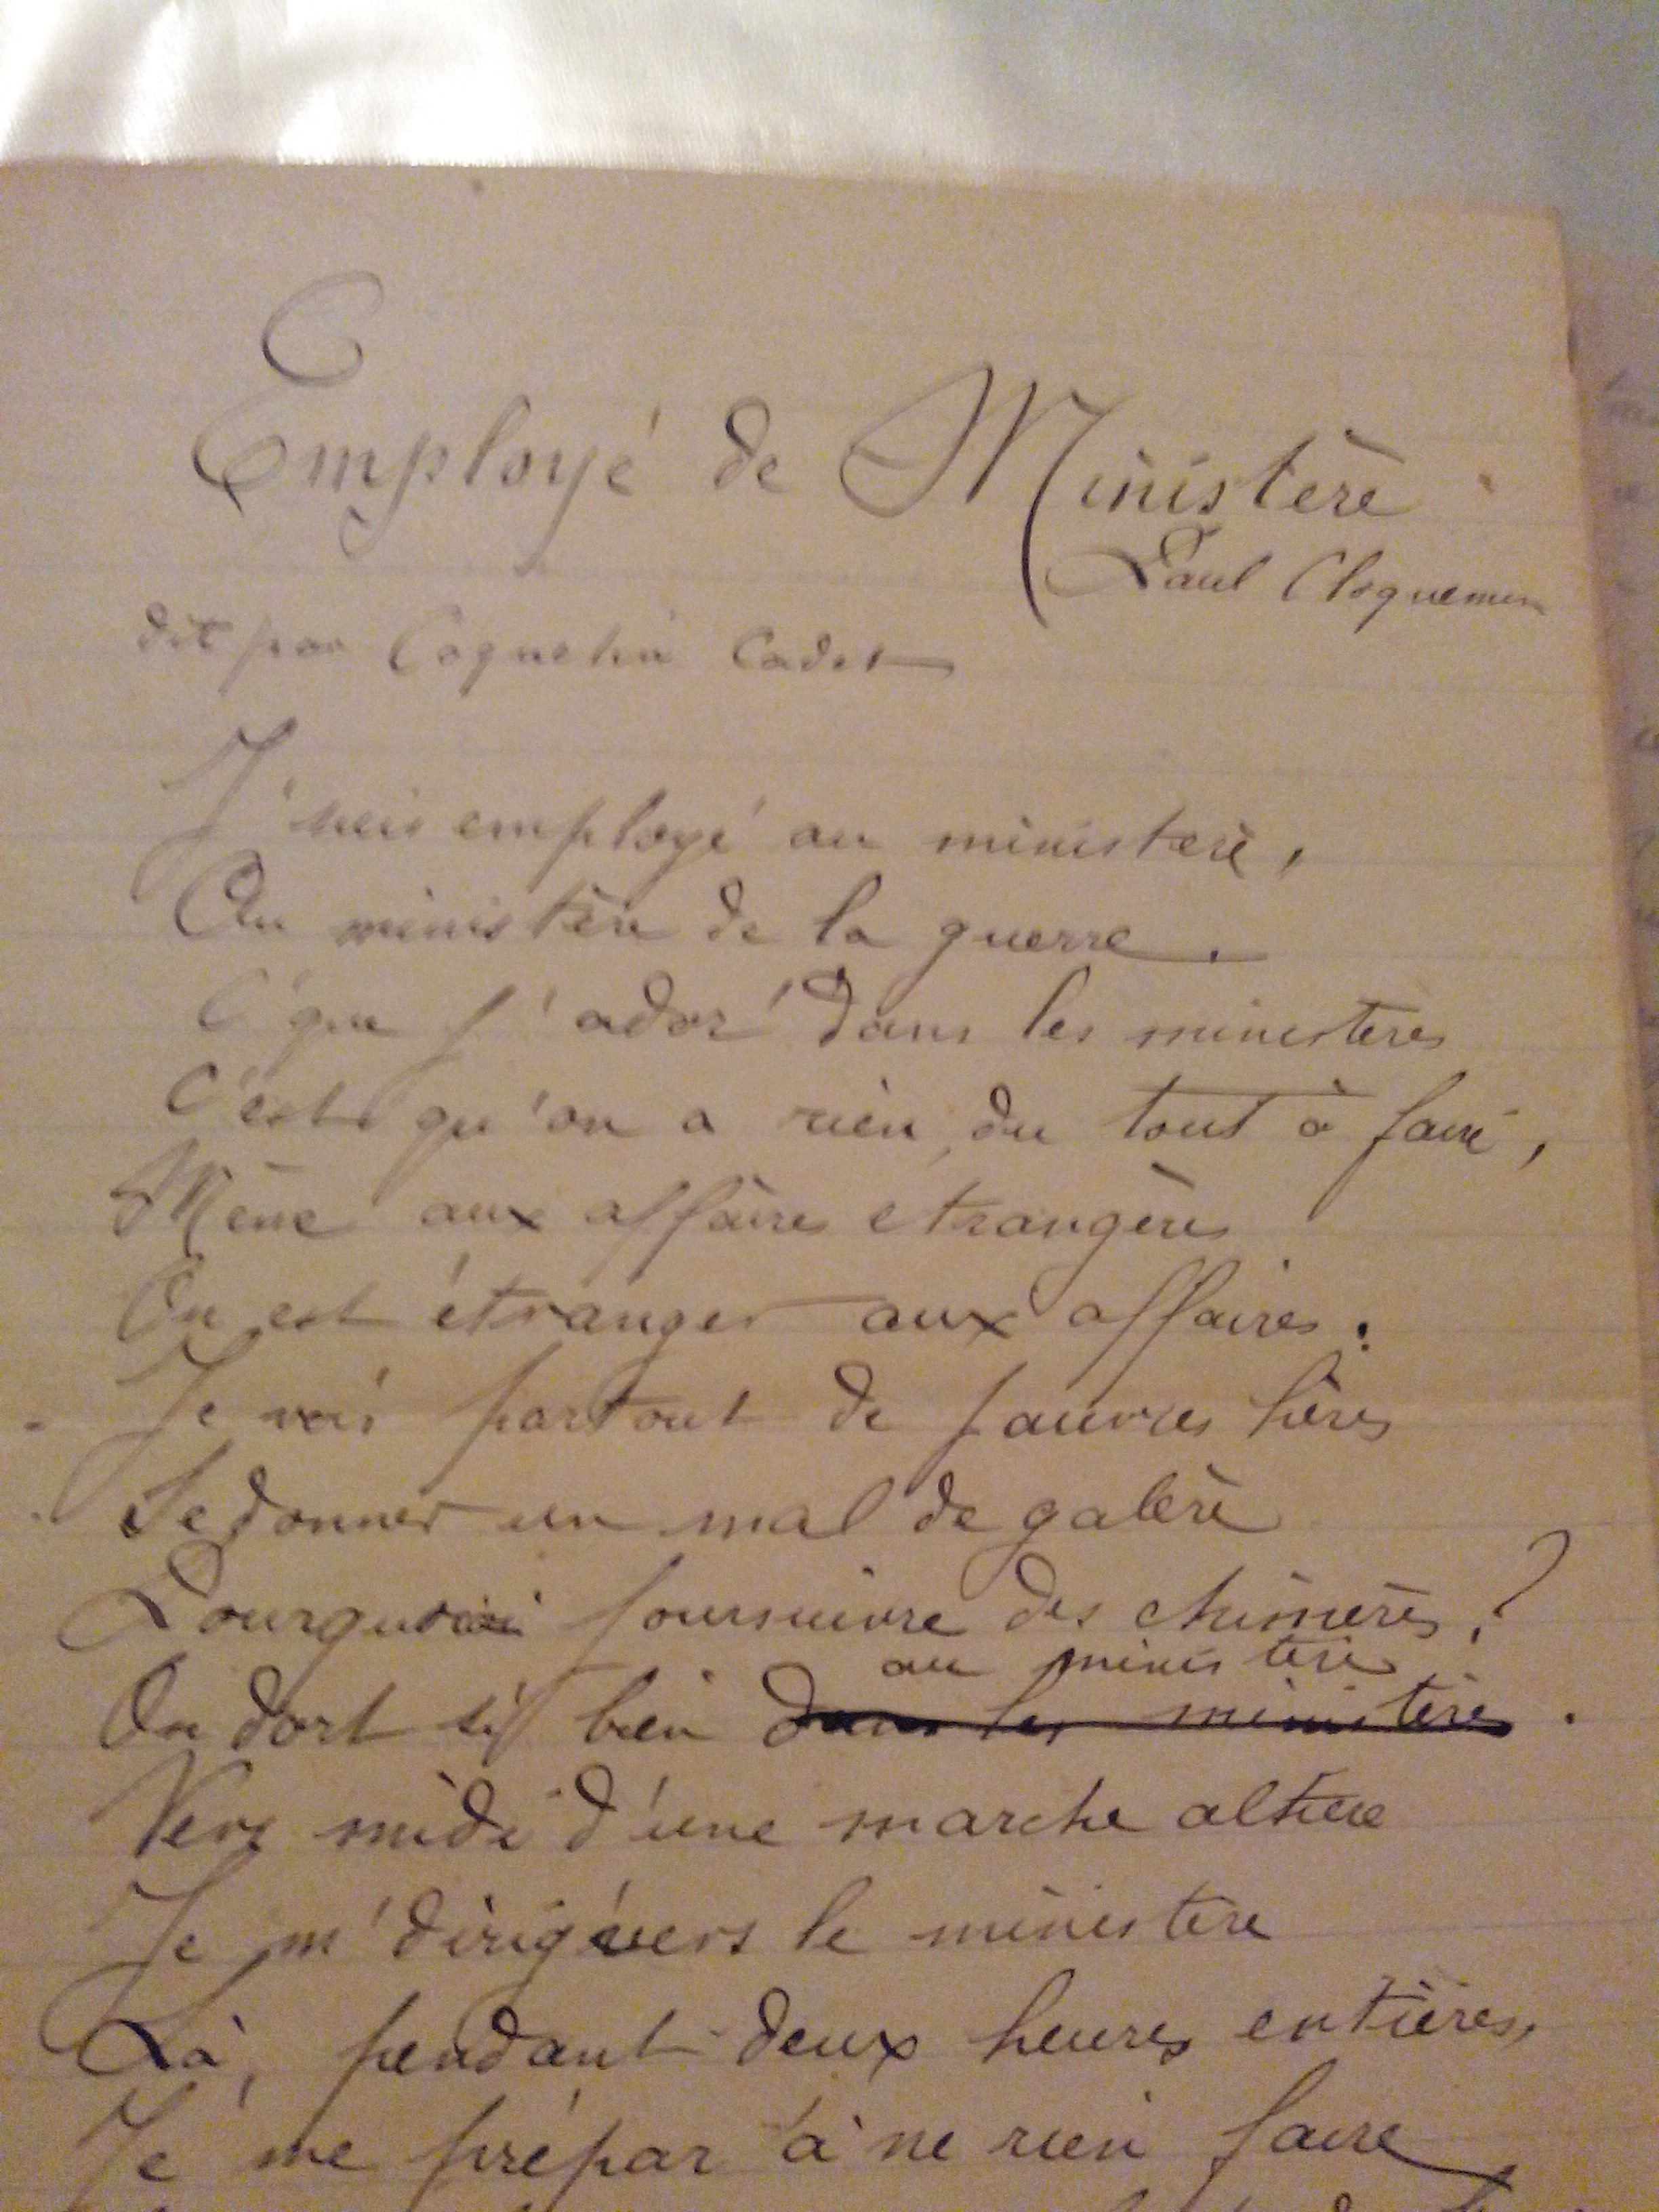 Employé de Ministère
Paul Cloquemin
dit par Coquelin Cadet
J'suis employé au ministère,
Au ministère de la guerre.
C'que j'ador' dans les ministères
C'est qu'on a rien du tout à faire,
Même aux affaires etrangères
On est étranger aux affaires.
Je vois partout de pauvres hères
Se donner un mal de galère
Pourquoi poursuivre des chimères ?
au ministère
On dort si bien dans les ministères.
Vers midi d'une marche altière
Je m'dirig' vers le ministère
Là, pendant deux heures entières,
Je me prépar' à ne rien faire